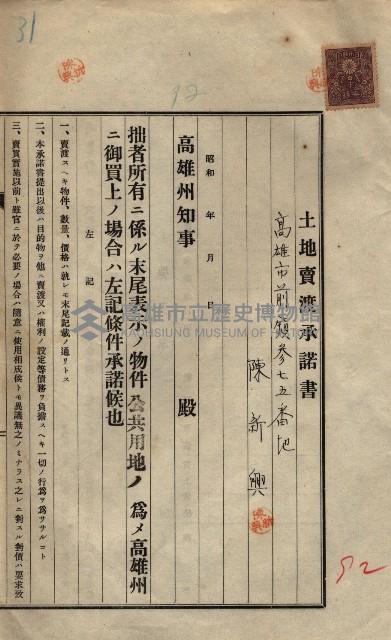 31
92
土地賣渡承諾書
高雄市前金領參七五番地
陳新興
昭和 年 月 日
高雄州知事 殿
拙者所有ニ係ル末尾表示ノ物件公共用地ノ爲メ高雄州
ニ御買上ノ場合ハ左記條件承諾候也
左記
一、賣渡スヘキ物件、數量、價格ハ孰レモ末尾記載ノ通リトス
二、本承諾書提出以後ハ目的物ヲ他ニ賣渡又ハ權利ノ設定等債務ヲ負擔スヘキ一切ノ行爲ヲ爲ササルコト
三、賣買實施以前ト雖官ニ於テ必要ノ場合ハ隨意ニ使用相成候トモ異議無之ノミナラス之レニ對スル對價ハ要求致
高雄市立歷史博物館
KAOHSIUNG MUSEUM OF HISTORY
92